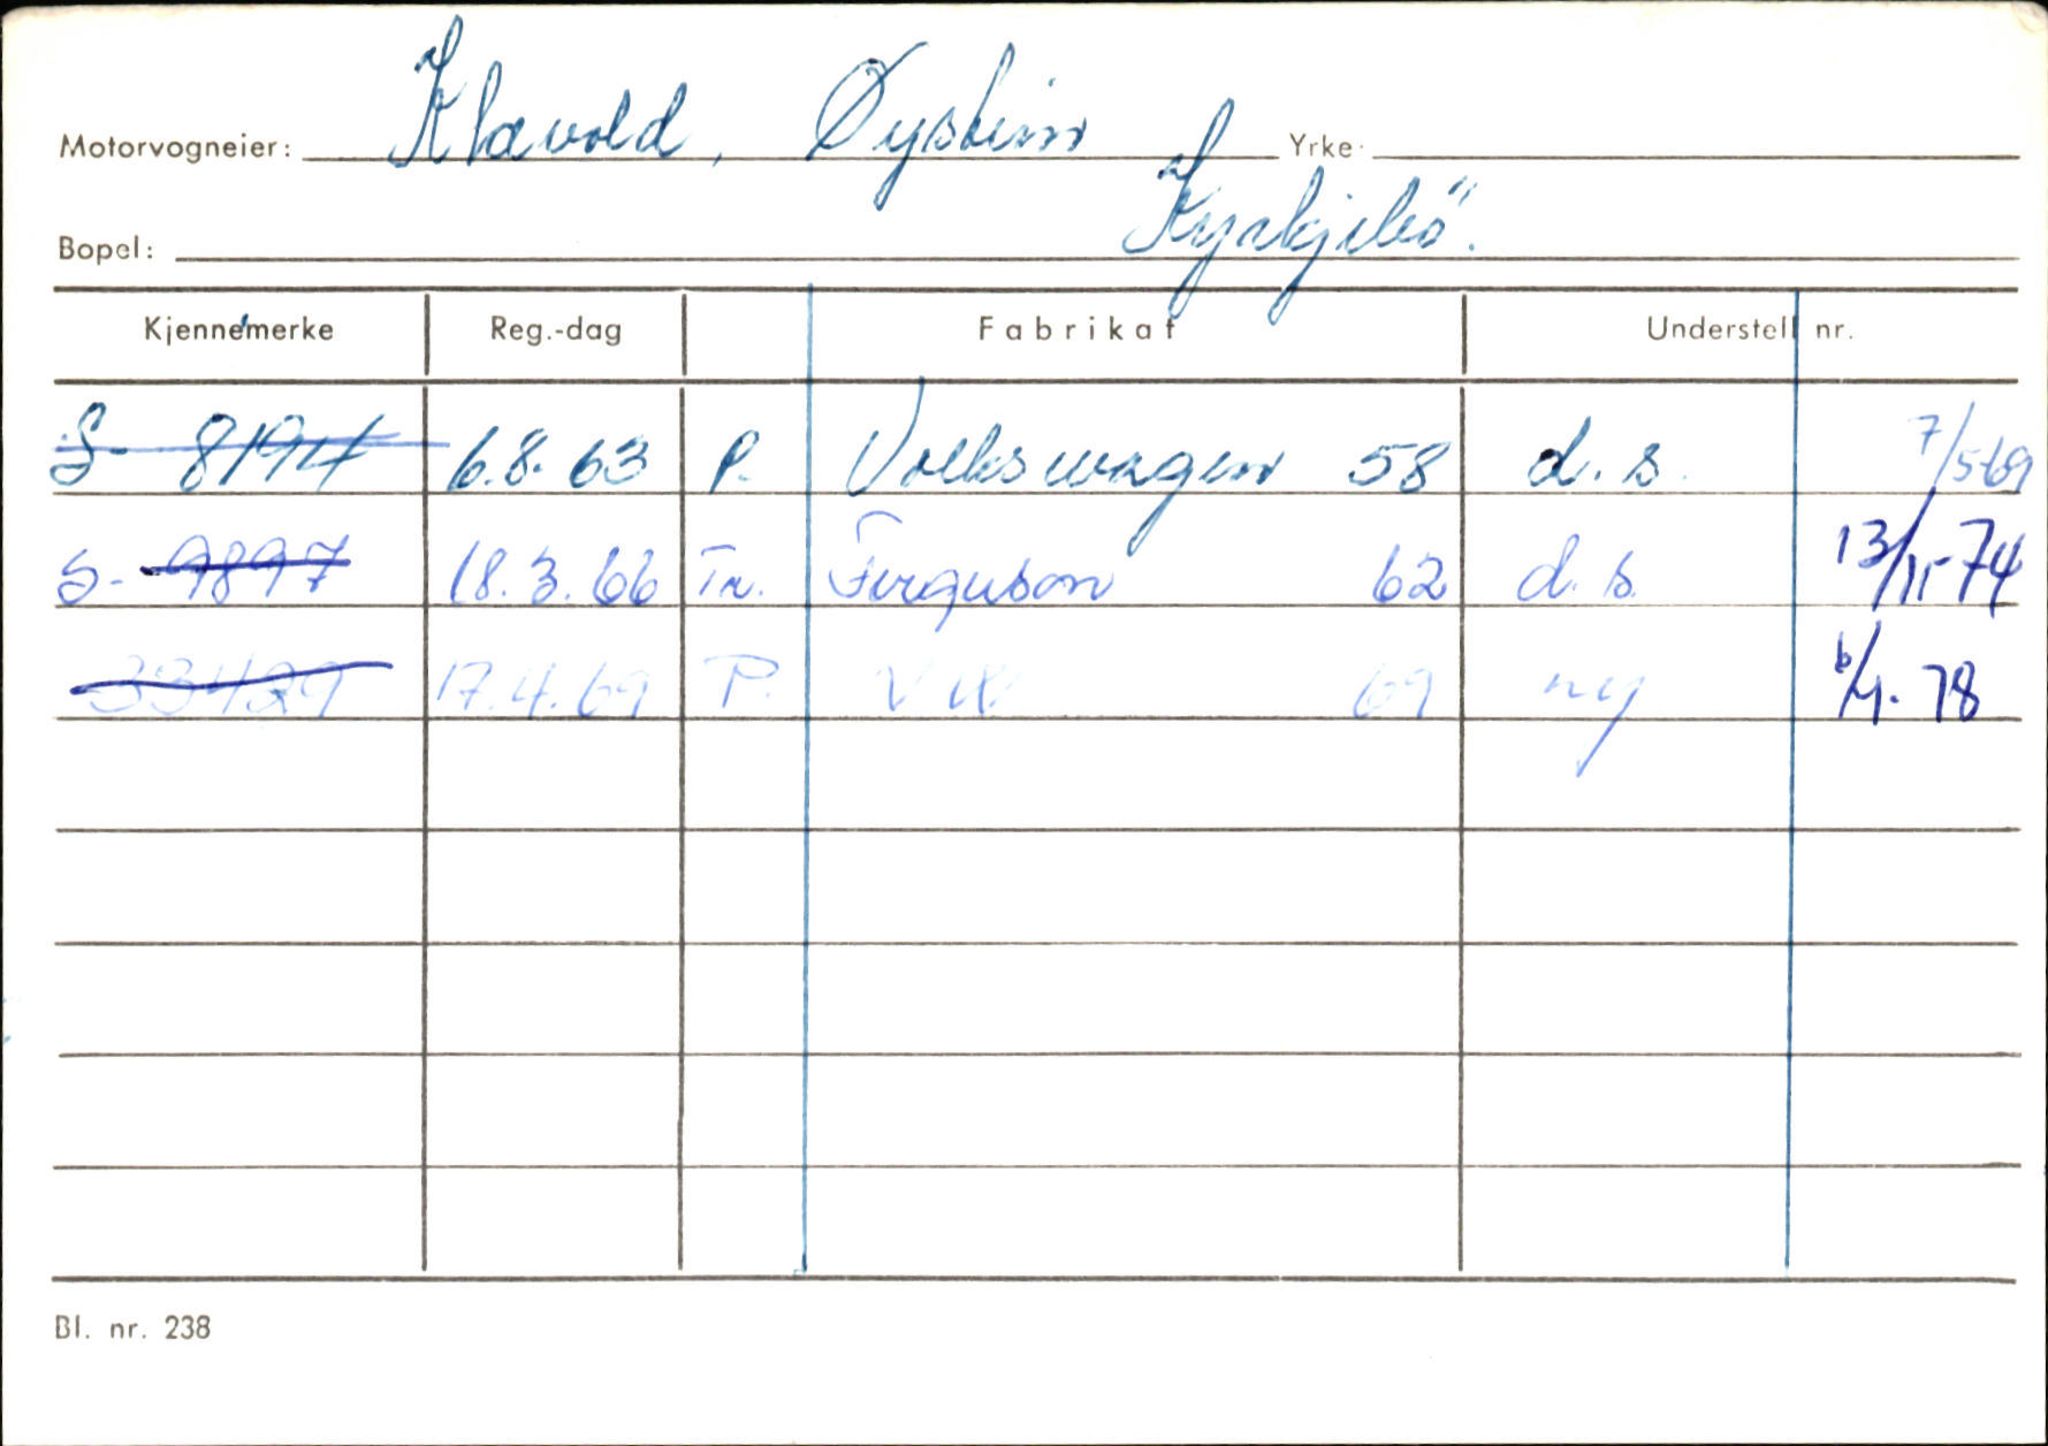 Motorvogneier: Klævold, Øystein Yrke
Bopel: Kyrkjebö.
Kjennemerke Reg.-dag Fabrikat Understell nr.
S- 8194 6.8.63 P. Volkswagen 58 d.s. 7/5-69
S- 9897 18.3.66 Tr. Ferguson 62 d.s. 13/11-74
33429 17.4.69 P. V.W. 69 ny 6/4-78
Bl. nr. 238